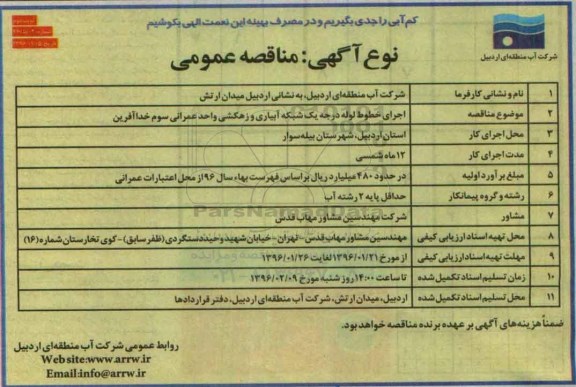 کم آبی را جدی بگیریم و در مصرف بهینه این نعمت الهی بکوشیم
شرکت آب منطقه‌ای اردبیل
نوع آگهی: مناقصه عمومی
۱ نام و نشانی کارفرما شرکت آب منطقه‌ای اردبیل، به نشانی اردبیل میدان ارتش
۲ موضوع مناقصه اجرای خطوط لوله درجه یک شبکه آبیاری و زهکشی واحد عمرانی سوم خداآفرین
۳ محل اجرای کار استان اردبیل، شهرستان بیله سوار
۴ مدت اجرای کار ۱۲ ماه شمسی
۵ مبلغ برآورد اولیه در حدود ۴۸۰ میلیارد ریال بر اساس فهرست بهاء سال ۹۶ از محل اعتبارات عمرانی
۶ رشته و گروه پیمانکار حداقل پایه ۲ رشته آب
۷ مشاور شرکت مهندسین مشاور مهاب قدس
۸ محل تهیه اسناد ارزیابی کیفی مهندسین مشاور مهاب قدس - تهران - خیابان شهید وحید دستگردی (ظفر سابق) - کوی تخارستان شماره (۱۶)
۹ مهلت تهیه اسناد ارزیابی کیفی از مورخ ۱۳۹۶/۰۱/۲۱ لغایت ۱۳۹۶/۰۱/۲۶
۱۰ زمان تسلیم اسناد تکمیل شده تا ساعت ۱۴:۰۰ روز شنبه مورخ ۱۳۹۶/۰۲/۰۹
۱۱ محل تسلیم اسناد تکمیل شده اردبیل، میدان ارتش، شرکت آب منطقه‌ای اردبیل، دفتر قراردادها
ضمناً هزینه‌های آگهی بر عهده برنده مناقصه خواهد بود.
روابط عمومی شرکت آب منطقه‌ای اردبیل
Website:www.arrw.ir
Email:info@arrw.ir